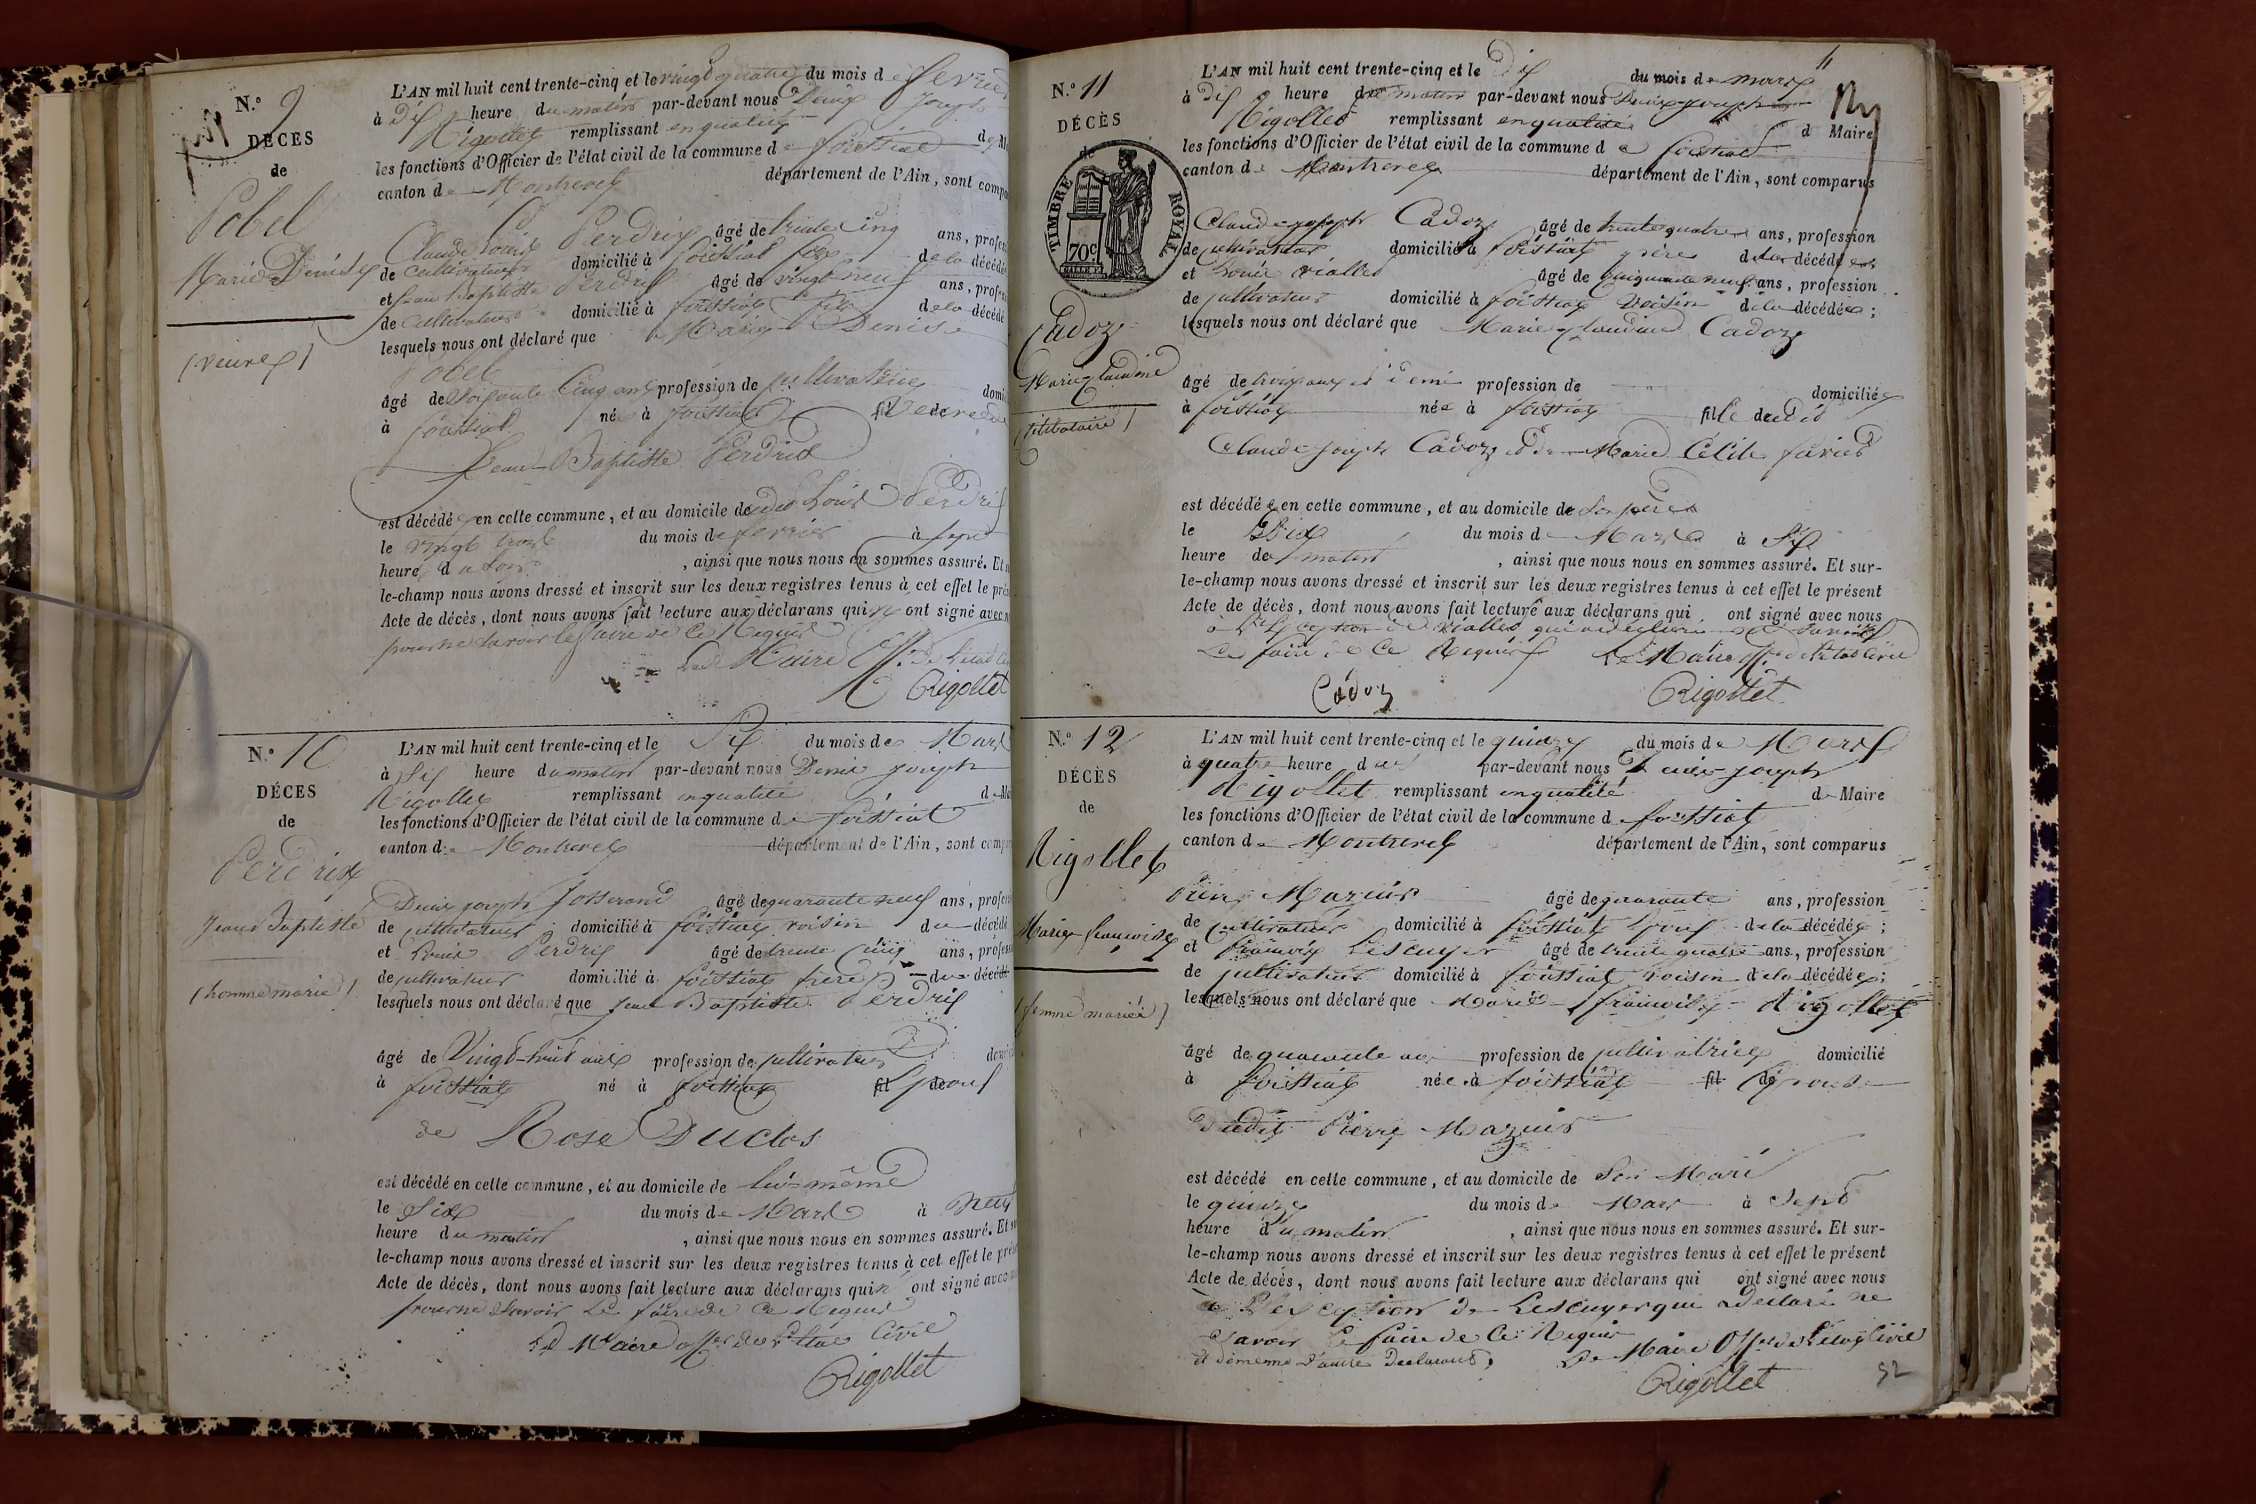 N.o 9
DÉCÈS
de
Pobel
Marie Denise
(veuve)
L'AN mil huit cent trente-cinq et le vingt quatre du mois de fevrier
à Dix heure du matin par-devant nous Denis Joseph
Rigollet remplissant en qualité de
les fonctions d'Officier de l'état civil de la commune de foissiat
canton de Montrevel département de l'Ain, sont
Claude Louis Perdrix âgé de trente Cinq ans,
de Cultivateur domicilié à foissiat fils de la décédé
et Jean Baptiste Perdrix âgé de vingt neuf ans,
de Cultivateur domicilié à foissiat fils de la décédé
lesquels nous ont déclaré que Marie Denise
Pobel
âgé de Soixante Cinq ans profession de Cultivatrice
à foissiat née à foissiat fil de veuve de
Jean-Baptiste Perdrix
est décédée en cette commune, et au domicile de dudit Louis Perdrix
le vingt trois du mois de fevrier à sept
heure du soir, ainsi que nous nous en sommes assuré. Et
le-champ nous avons dressé et inscrit sur les deux registres tenus à cet effet le
Acte de décès, dont nous avons fait lecture aux déclarans qui n'ont signé avec
pour ne savoir le faire de ce Requis
Le Maire Off. de l'état
Rigollet
N.o 10
DÉCES
de
Perdrix
Jean Baptiste
(homme marié)
L'AN mil huit cent trente-cinq et le Six du mois de Mars
à Dix heure du matin par-devant nous Denis Joseph
Rigollet remplissant en qualité de
les fonctions d'Officier de l'état civil de la commune de foissiat
canton de Montrevel département de l'Ain, sont
Denis Joseph Josserand âgé de quarante neuf ans,
de cultivateur domicilié à foissiat voisin du décédé
et Louis Perdrix âgé de trente cinq ans,
de cultivateur domicilié à foissiat frere du décédé
lesquels nous ont déclaré que Jean Baptiste Perdrix
âgé de Vingt-huit ans profession de cultivateur
à foissiat né à foissiat fil de Epoux
de Rose Duclos
est décédé en cette commune, et au domicile de lui-même
le Six du mois de Mars à neuf
heure du matin, ainsi que nous nous en sommes assuré. Et
le-champ nous avons dressé et inscrit sur les deux registres tenus à cet effet le
Acte de décès, dont nous avons fait lecture aux déclarans qui n'ont signé avec
pour ne Savoir le faire de ce Requis
Le Maire off. de l'état Civil
Rigollet
11
N.o 11
DÉCÈS
de
TIMBRE ROYAL
70 C.
Cadoz
Marie Claudine
(Célibataire)
L'AN mil huit cent trente-cinq et le Dix du mois de mars
à Dix heure du matin par-devant nous Denis Joseph
Rigollet remplissant en qualité de Maire
les fonctions d'Officier de l'état civil de la commune de foissiat
canton de Montrevel département de l'Ain, sont comparus
Claude Joseph Cadoz âgé de trente quatre ans, profession
de cultivateur domicilié à foissiat père de la décédée
et Louis Vialles âgé de cinquante neuf ans, profession
de cultivateur domicilié à foissiat voisin de la décédée;
lesquels nous ont déclaré que Marie Claudine Cadoz
âgé de trois ans et demi profession de domiciliée
à foissiat née à foissiat fille dudit
Claude Joseph Cadoz et de Marie Célile
est décédée en cette commune, et au domicile de Son père
le Dix du mois de Mars à Six
heure du matin, ainsi que nous nous en sommes assuré. Et sur-
le-champ nous avons dressé et inscrit sur les deux registres tenus à cet effet le présent
Acte de décès, dont nous avons fait lecture aux déclarans qui ont signé avec nous
à L'Exception de Vialles qui a déclaré ne Savoir
Le faire de Ce Requis Le Maire Off. de l'état Civil
Cadoz Rigollet
N.o 12
DÉCÈS
de
Rigollet
Marie françoise
(femme mariée)
L'AN mil huit cent trente-cinq et le quinze du mois de Mars
à quatre heure du par-devant nous Denis Joseph
Rigollet remplissant en qualité de Maire
les fonctions d'Officier de l'état civil de la commune de foissiat
canton de Montrevel département de l'Ain, sont comparus
Pierre Mazuir âgé de quarante ans, profession
de cultivateur domicilié à foissiat Epoux de la décédée;
et françois Lescuyer âgé de trente quatre ans, profession
de cultivateur domicilié à foissiat voisin de la décédée;
lesquels nous ont déclaré que Marie françoise Rigollet
âgé de quarante ans profession de cultivatrice domicilié
à foissiat née à foissiat fil de Epouse
Dudit Pierre Mazuir
est décédé en cette commune, et au domicile de Son Mari
le quinze du mois de Mars à Sept
heure du matin, ainsi que nous nous en sommes assuré. Et sur-
le-champ nous avons dressé et inscrit sur les deux registres tenus à cet effet le présent
Acte de décès, dont nous avons fait lecture aux déclarans qui ont signé avec nous
à L'exception de Lescuyer qui a Declaré ne
Savoir le faire de Ce Requis
et de même l'autre Declarant, Le Maire Off. de l'état Civil
Rigollet
52